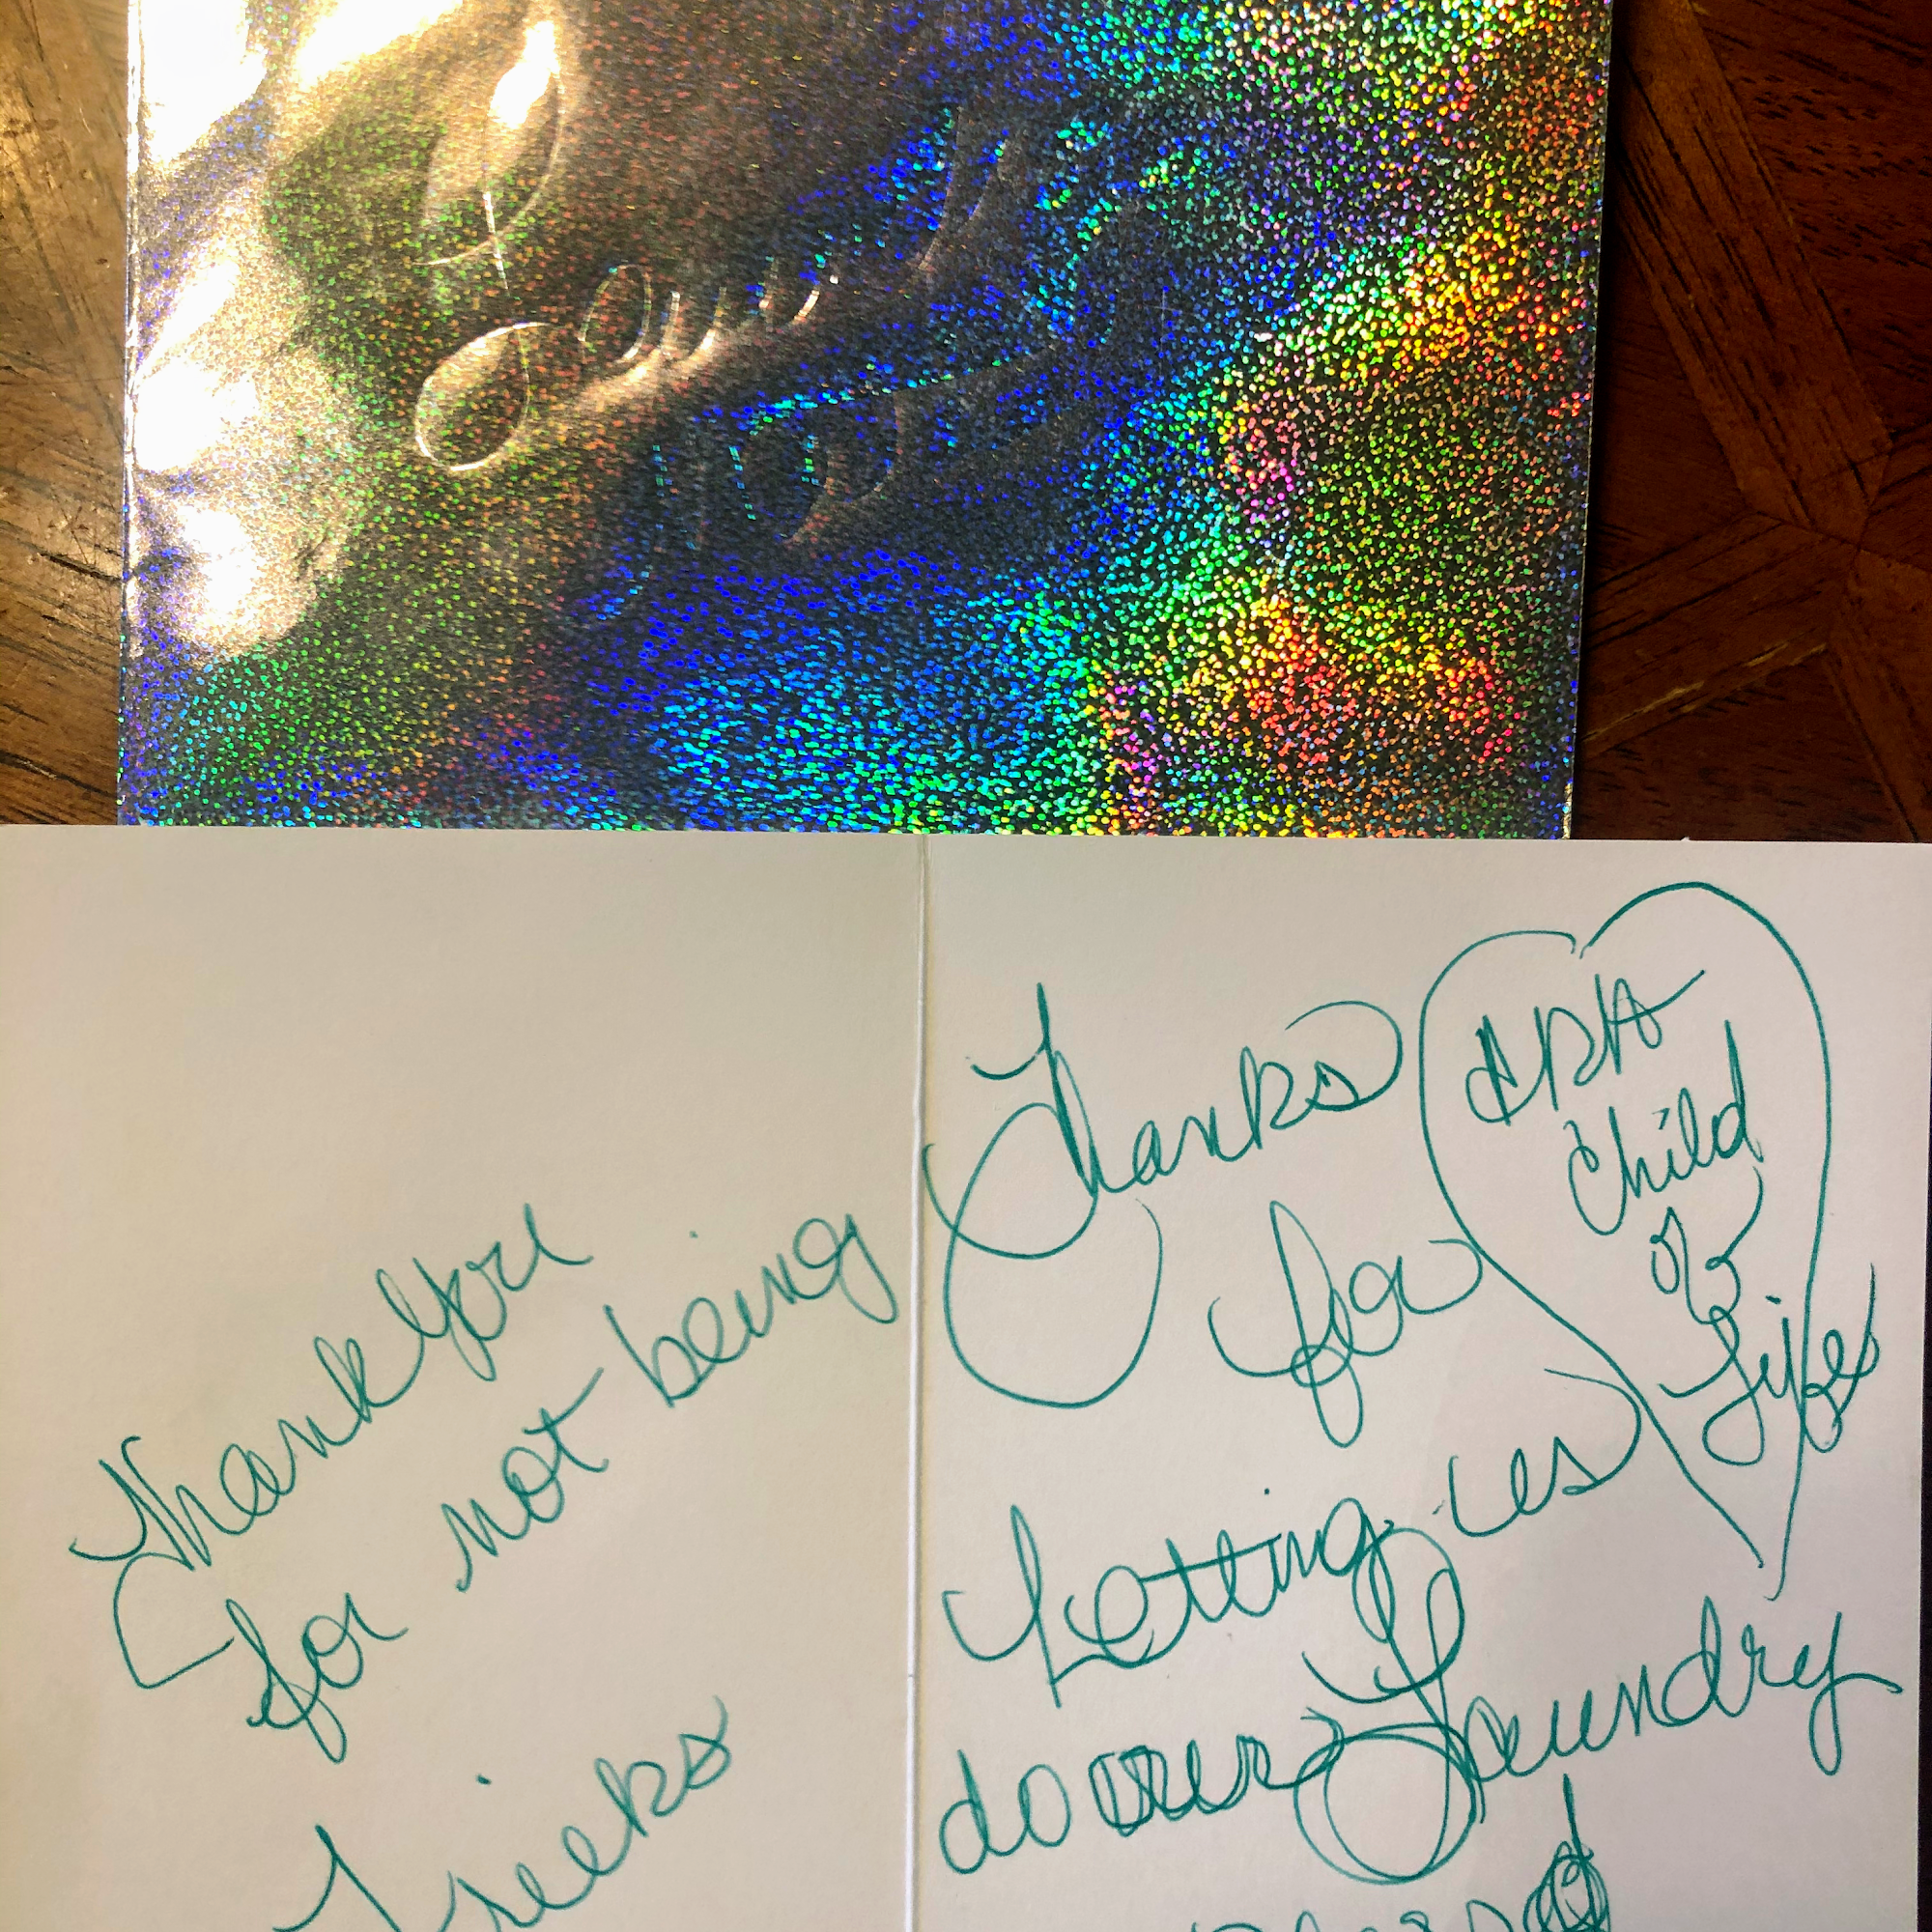 Thank You
for not being
Thanks
for
Letting us
do our Laundry
Child
Of
Life